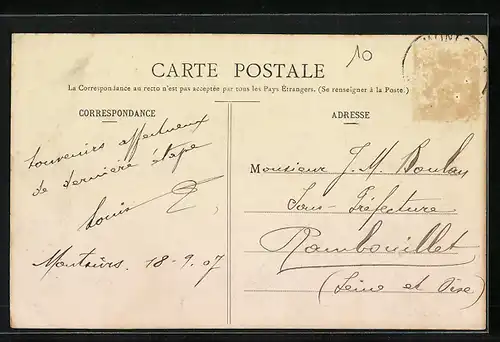 10
CARTE POSTALE
La Correspondance au recto n'est pas acceptée par tous les Pays Étrangers. (Se renseigner à la Poste.)
CORRESPONDANCE
ADRESSE
Souvenirs affectueux
de dernière étape
Louis
18-9.07
Monsieur J. M. Boulay
Sous-Préfecture
Rambouillet
(Seine et Oise)